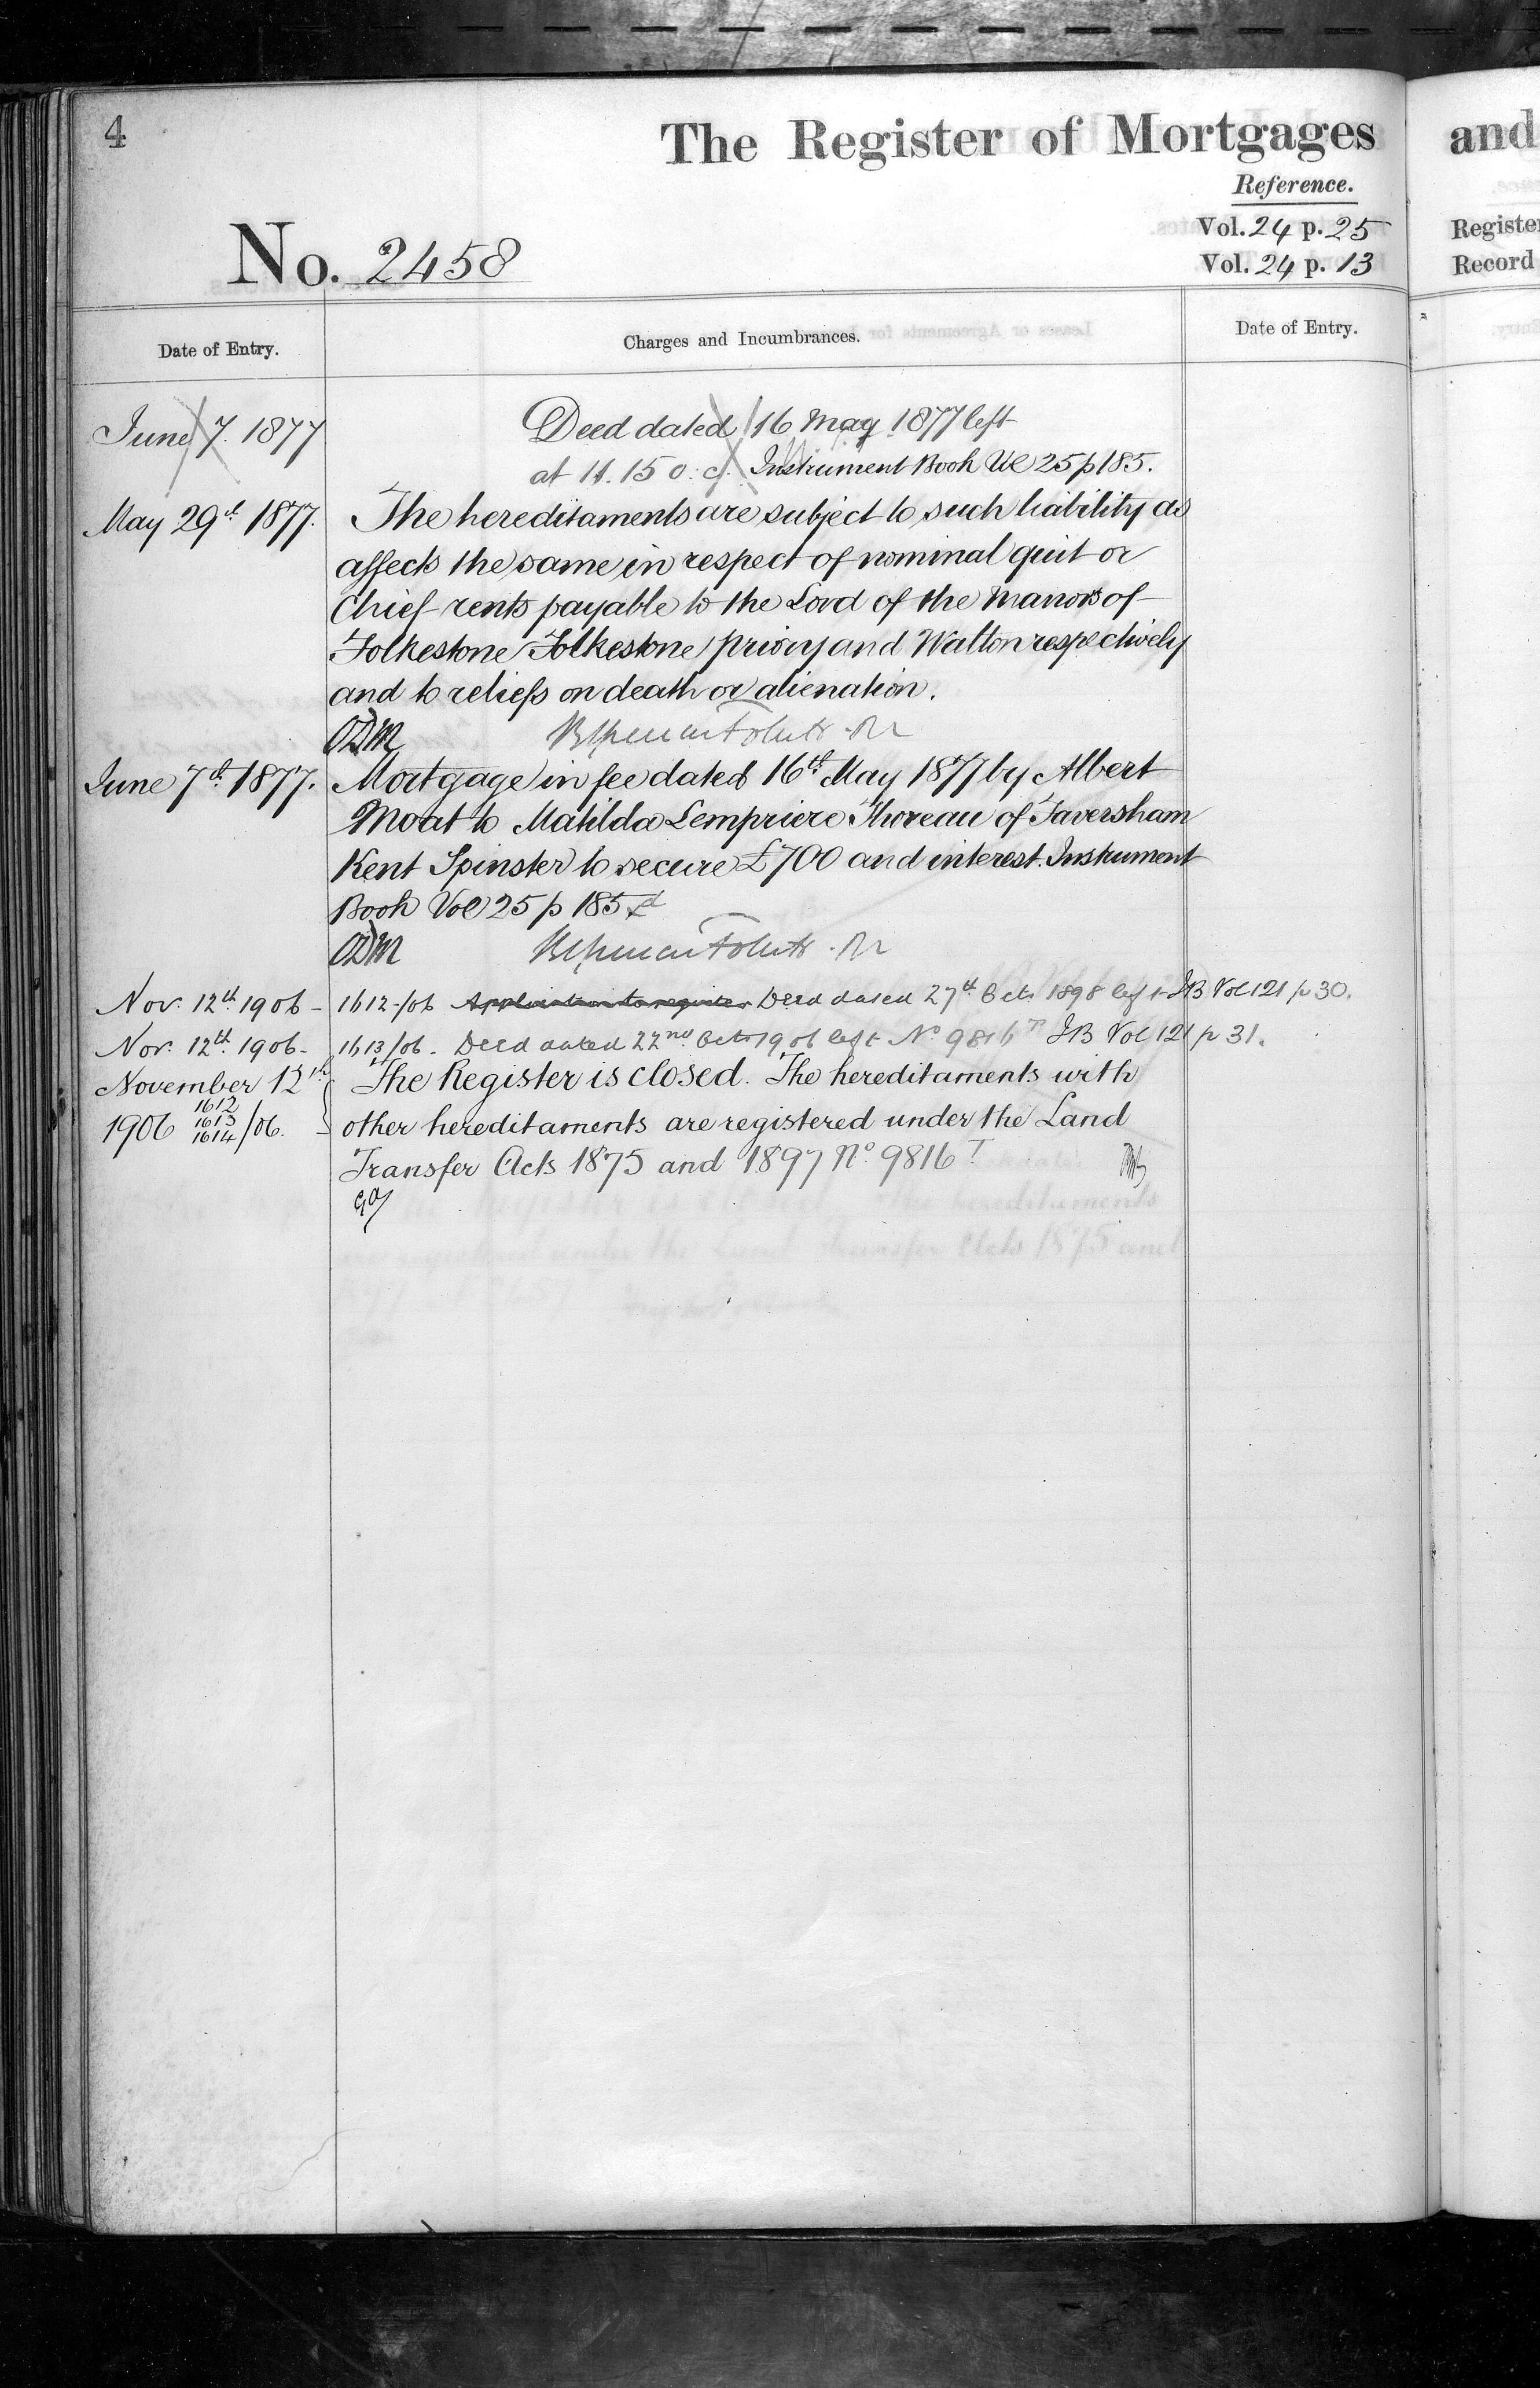 4
The Register of Mortgages
and
Reference.
No. 2458
Vol. 24 p. 25
Vol. 24 p. 13
Record
Date of Entry.
Charges and Incumbrances.
Date of Entry.
June 7. 1877
Deed dated 16 May 1877 left
at 11.15 o.c. Instrument Book Vol 25 p 185.
May 29th 1877.
The hereditaments are subject to such liability as
affects the same in respect of nominal quit or
Chief rents payable to the Lord of the Manors of
Folkestone Folkestone priory and Walton respectively
and to reliefs on death or alienation.
ODM
June 7th 1877.
Mortgage in fee dated 16th May 1877 by Albert
Moat to Matilda Lempriere Thoreau of Faversham
Kent Spinster to secure £700 and interest. Instrument
Book Vol 25 p 185
ODM
Nov. 12th 1906 - 1612/06 Application to register Deed dated 27th Oct. 1898 left IB Vol 121 p 30.
Nov. 12th 1906 - 1613/06 - Deed dated 22nd Oct 1906 left No 9816 T IB Vol 121 p 31.
November 12th
1906 1612 1613 1614/06.
The Register is closed. The hereditaments with
other hereditaments are registered under the Land
Transfer Acts 1875 and 1897 No 9816 T